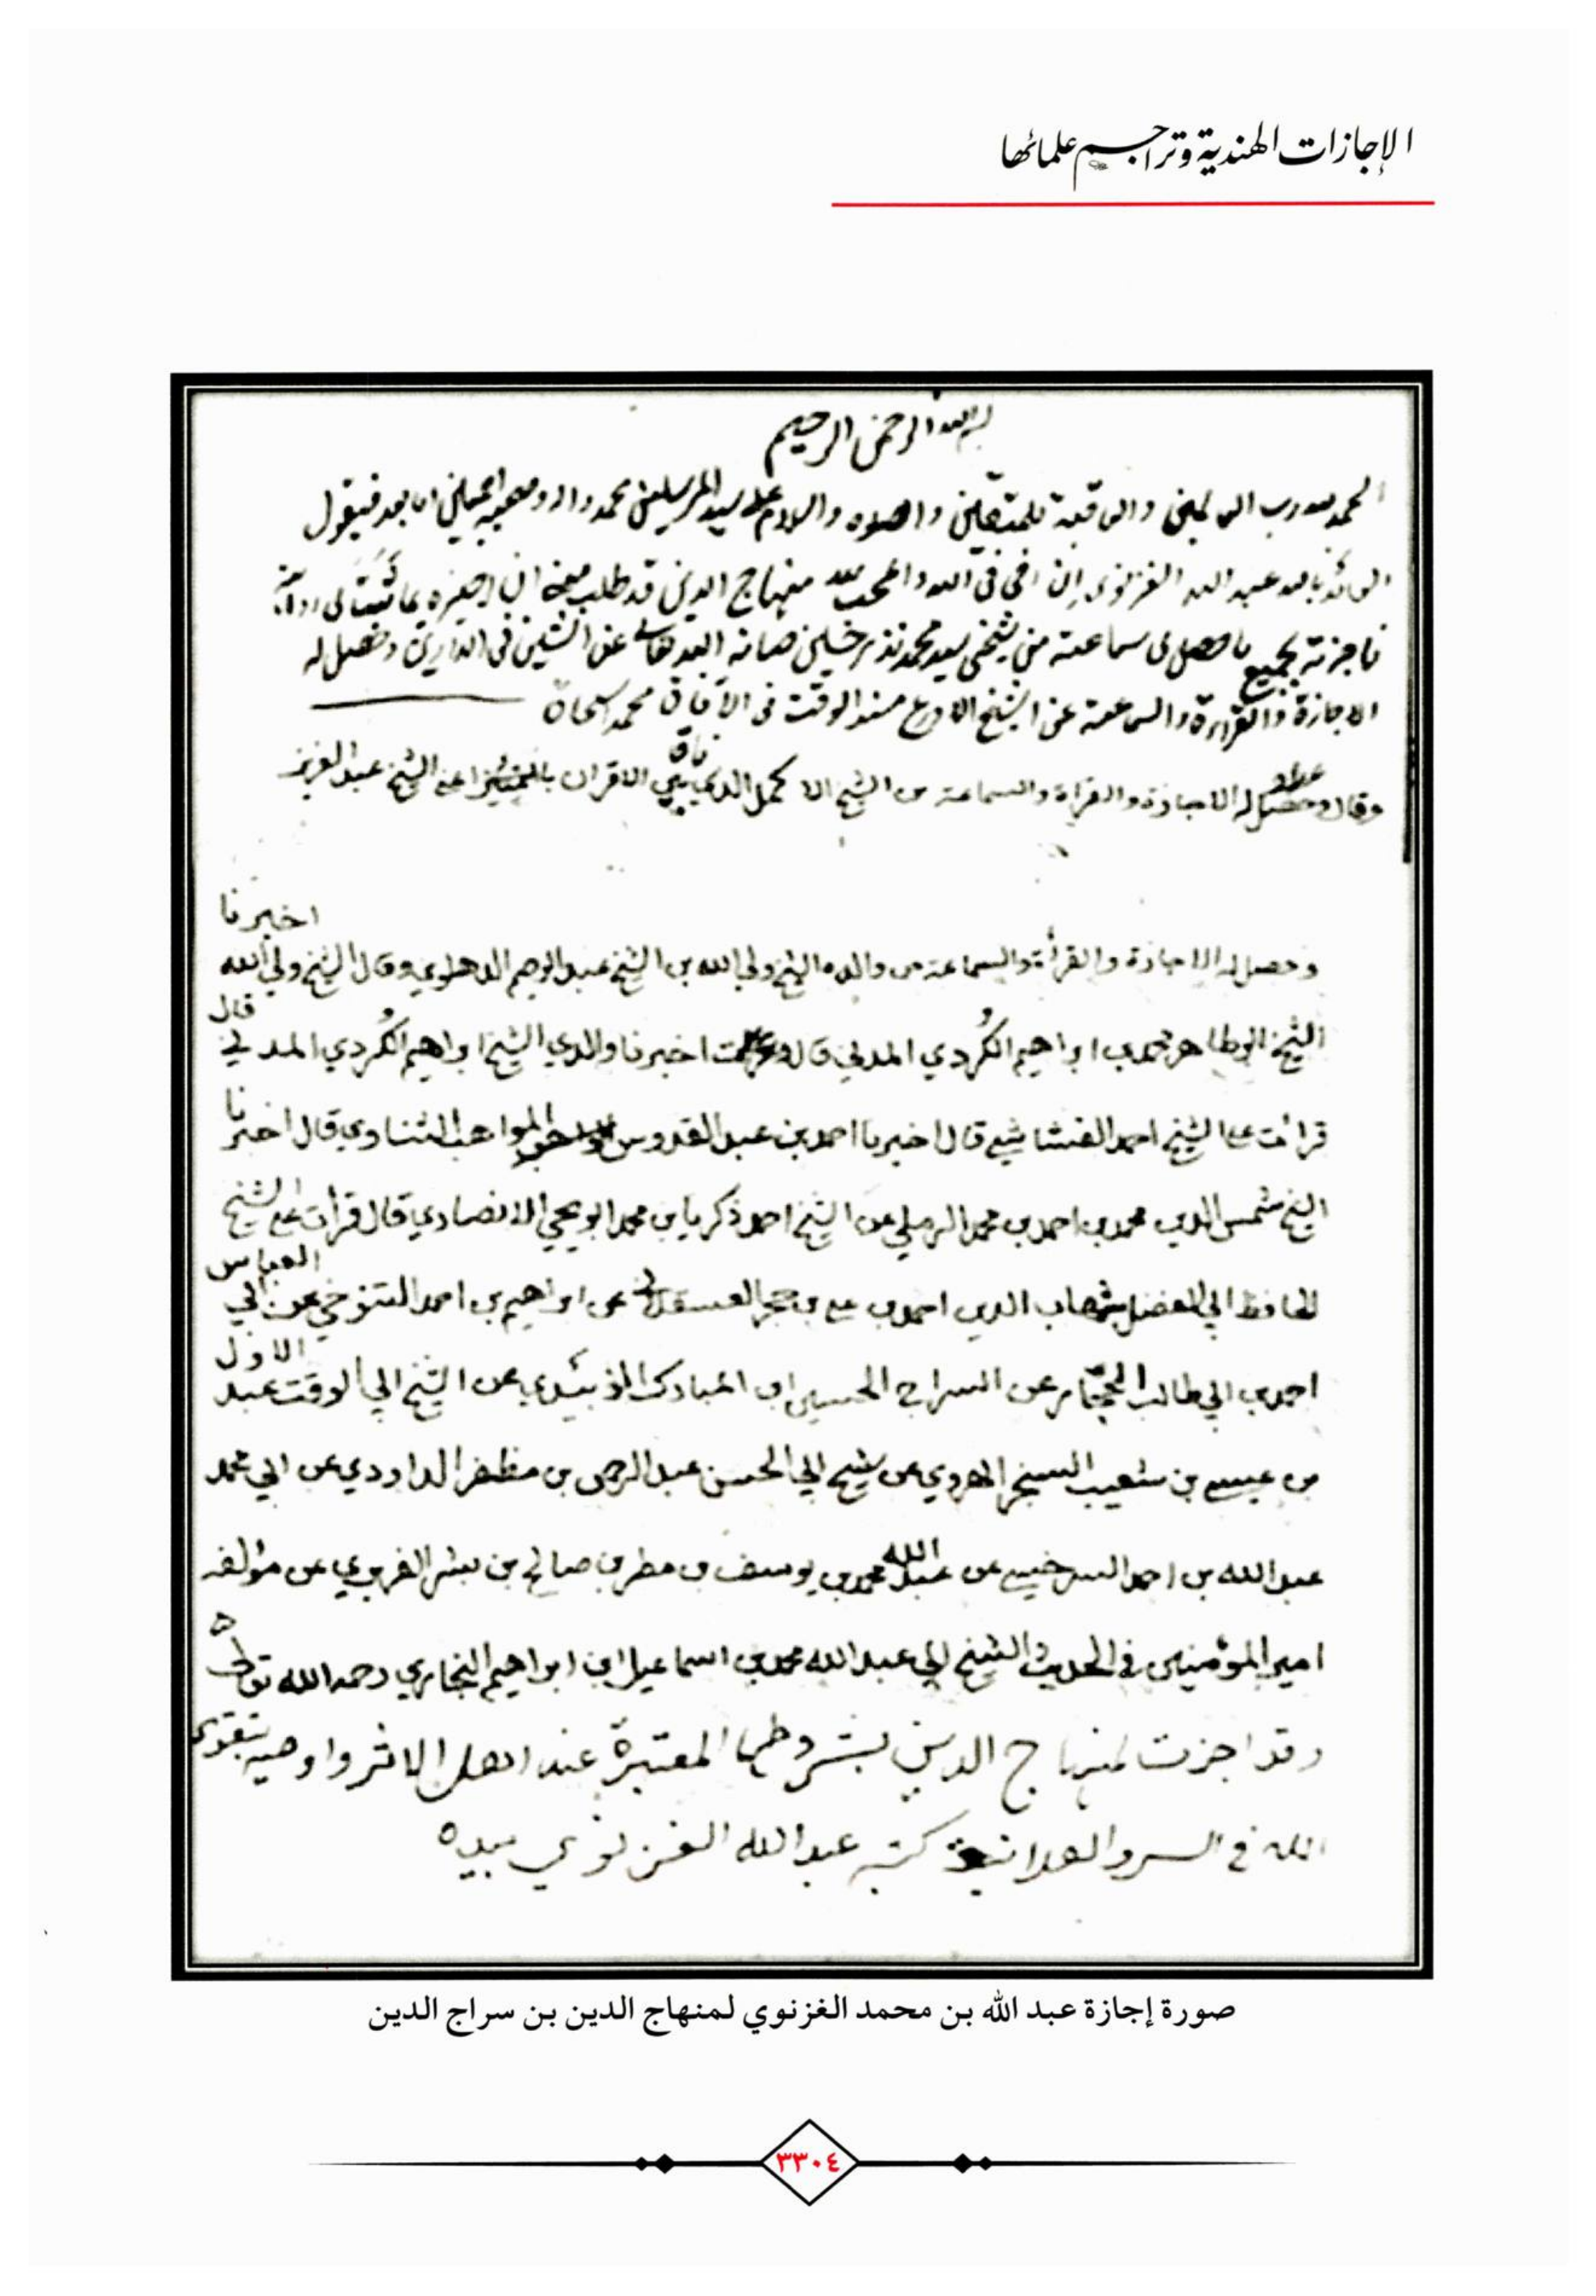 الإجازات الهندية وتراجم علمائها
بسم الله الرحمن الرحيم
الحمد لله رب العالمين والعاقبة للمتقين والصلاة والسلام على سيد المرسلين محمد واله وصحبه اجمعين اما بعد فيقول
العائذ بالله عبد الله الغزنوي ان اخي في الله والمحب لله منهاج الدين قد طلب مني ان اجيزه بما
فاجزته بجميع ما حصل لي سماعته من شيخي سيد محمد نذير حسين صانه الله تعالى عن الشين في الدارين وحصل له
الاجازة والقراءة والسماعة عن الشيخ الاورع مسند الوقت في الآفاق محمد اسحاق
وقال وحصل له الاجازة والقراة والسماعة من الشيخ الاكمل الذي فاق الاقران بالتمييز اعني الشيخ عبد العزيز
وحصل له الاجازة والقرأة والسماعة من والده الشيخ ولي الله بن الشيخ عبد الرحيم الدهلوي وقال الشيخ ولي الله اخبرنا
الشيخ ابو طاهر محمد بن ابراهيم الكُردي المدني قال اخبرنا والدي الشيخ ابراهيم الكُردي المدني قال
قرأت على الشيخ احمد القشاشي قال اخبرنا احمد بن عبد القدوس ابو المواهب الشناوي قال اخبرنا
الشيخ شمس الدين محمد بن احمد بن محمد الرملي عن الشيخ احمد زكريا بن محمد ابو يحيى الانصاري قال قرأت على الشيخ
الحافظ ابي الفضل شهاب الدين احمد بن علي بن حجر العسقلاني عن ابراهيم بن احمد التنوخي عن ابي العباس
احمد بن ابي طالب الحجّار عن السراج الحسين ابن المبارك الزبيدي عن الشيخ ابي الوقت عبد الاول
بن عيسى بن شعيب السنجر الهروي عن شيخ ابي الحسن عبد الرحمن بن مظفر الداودي عن ابي محمد
عبد الله بن احمد السرخسي عن عبد الله محمد بن يوسف بن مطر بن صالح بن بشر الفربري عن مؤلفه
امير المؤمنين في الحديث الشيخ ابي عبد الله محمد بن اسماعيل ابن ابراهيم البخاري رحمه الله تعالى
وقد اجزت لمنهاج الدين بشروطها المعتبرة عند اهل الاثر واوصيه بتقوى
الله في السر والعلانية كتبه عبد الله الغزنوي بيده
صورة إجازة عبد الله بن محمد الغزنوي لمنهاج الدين بن سراج الدين
٣٣٠٤